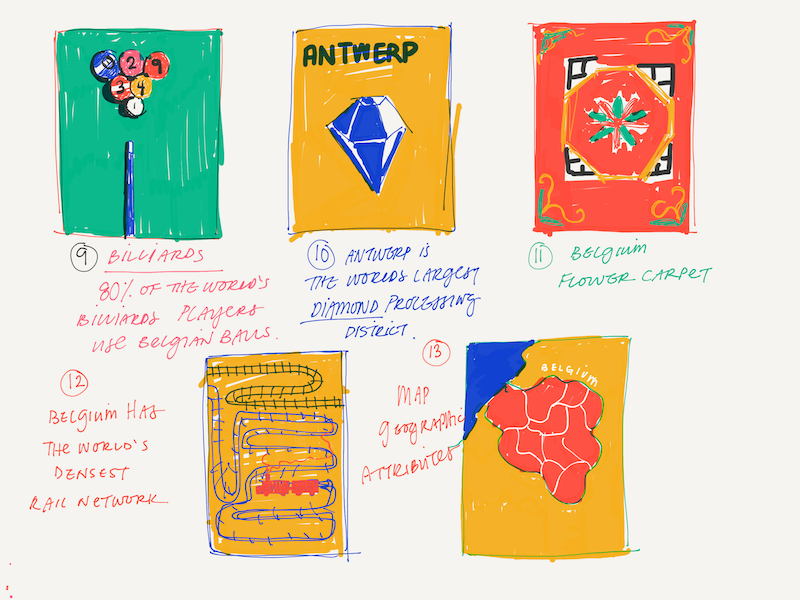 2 9
3 4
1
ANTWERP
9 BILLIARDS
80% OF THE WORLD'S
BILLIARDS PLAYERS
USE BELGIAN BALLS.
10 ANTWERP IS
THE WORLDS LARGEST
DIAMOND PROCESSING
DISTRICT.
11 BELGIUM
FLOWER CARPET
12
BELGIUM HAS
THE WORLD'S
DENSEST
RAIL NETWORK
13
MAP
GEOGRAPHIC
ATTRIBUTES
BELGIUM